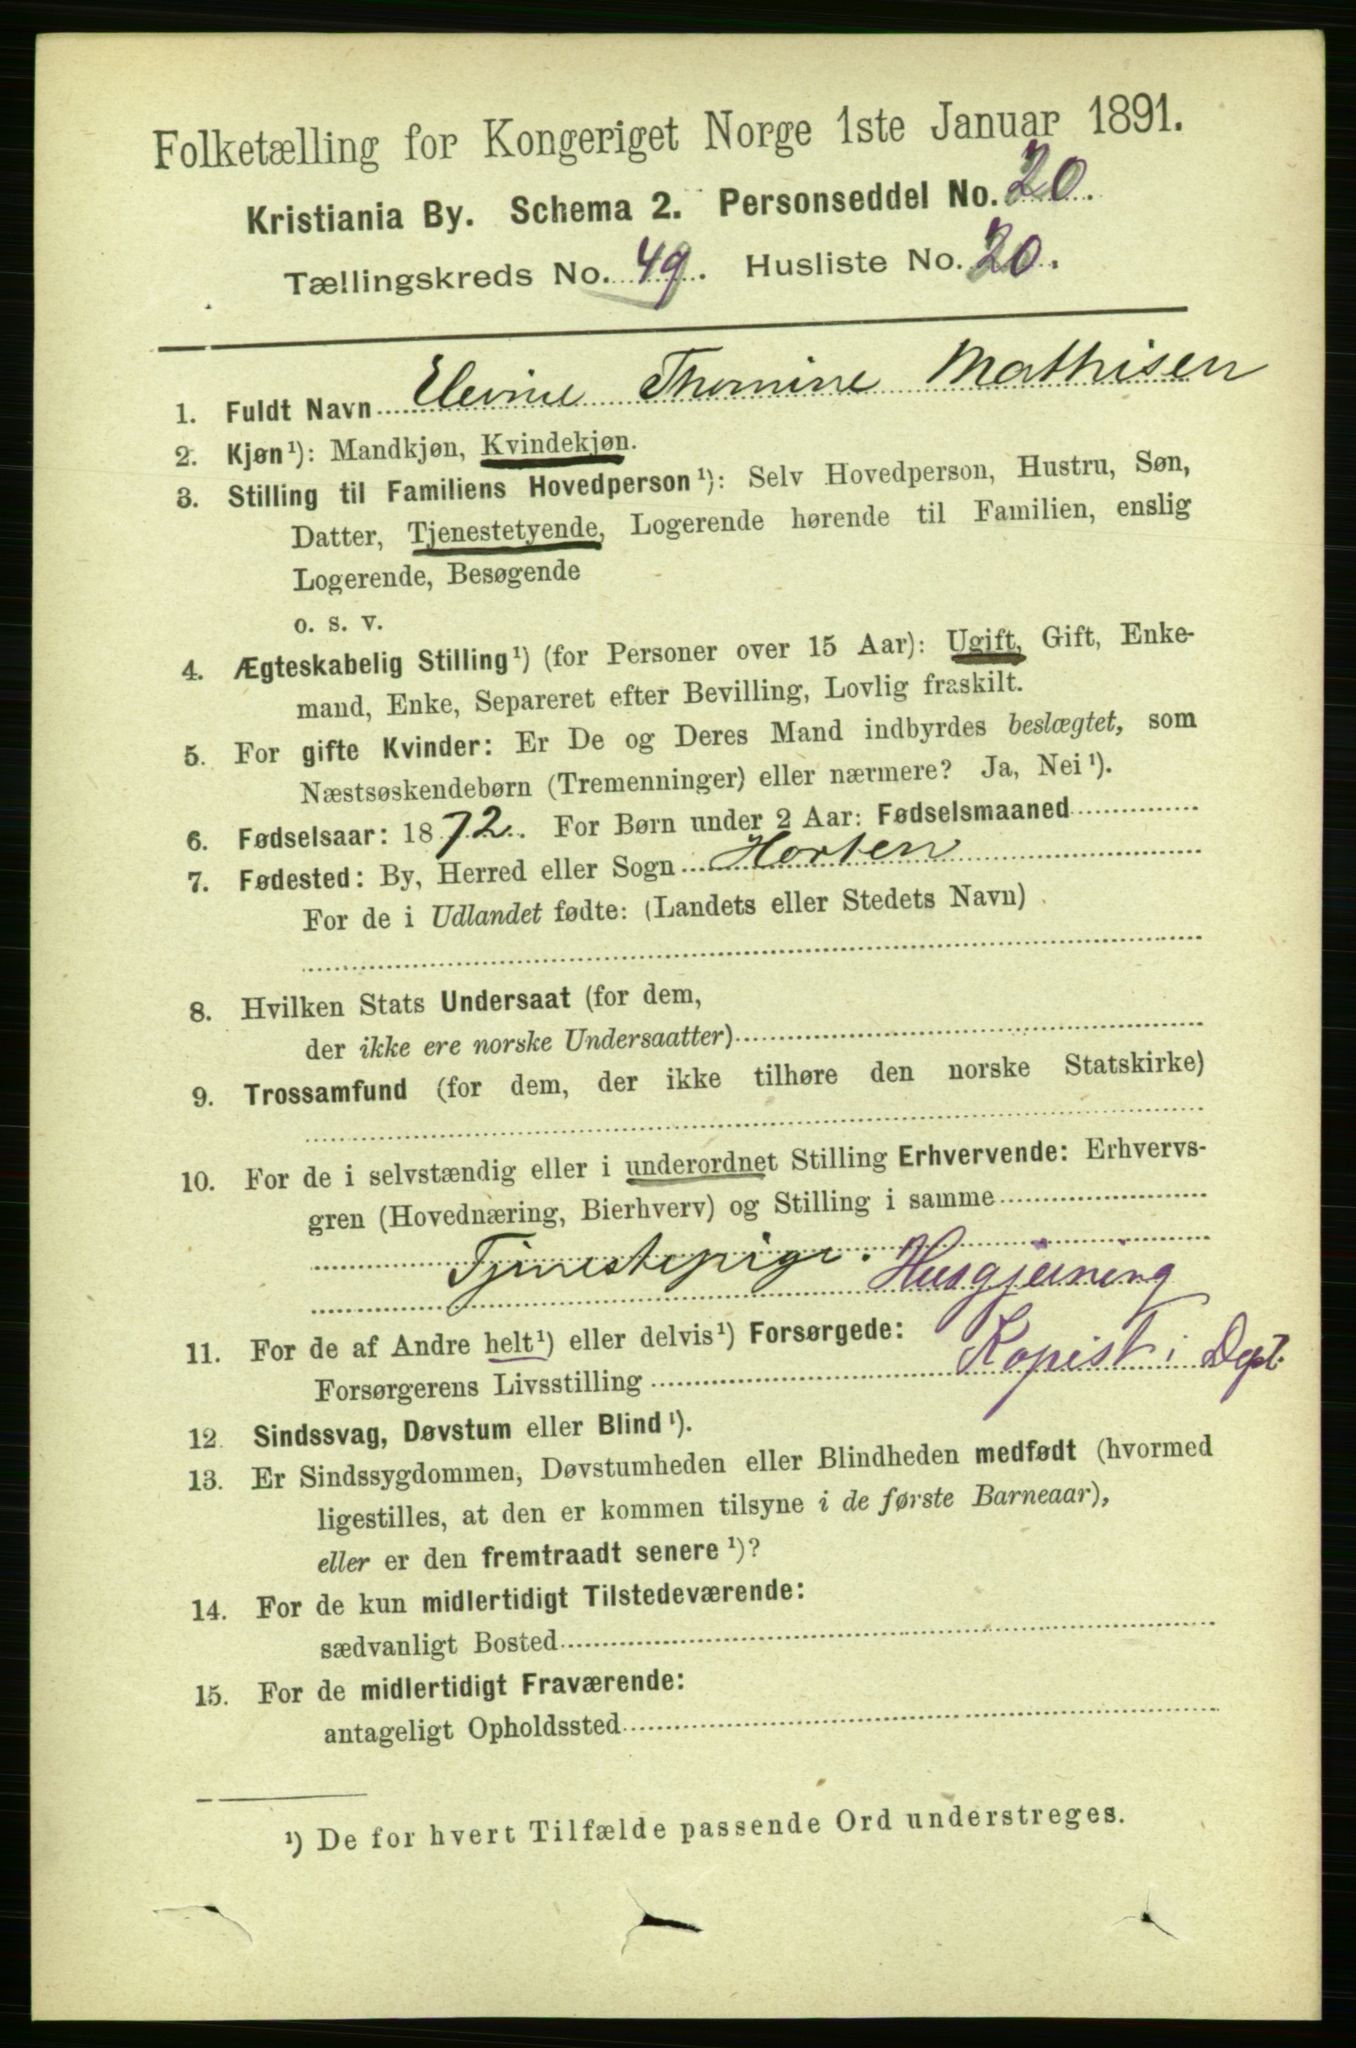 Folketælling for Kongeriget Norge 1ste Januar 1891.
Kristiania By. Schema 2. Personseddel No. 20.
Tællingskreds No. 49. Husliste No. 20.
1. Fuldt Navn Elevine Thomine Mathisen
2. Kjøn¹): Mandkjøn, Kvindekjøn.
3. Stilling til Familiens Hovedperson¹): Selv Hovedperson, Hustru, Søn,
Datter, Tjenestetyende, Logerende hørende til Familien, enslig
Logerende, Besøgende
o. s. v.
4. Ægteskabelig Stilling¹) (for Personer over 15 Aar): Ugift, Gift, Enke-
mand, Enke, Separeret efter Bevilling, Lovlig fraskilt.
5. For gifte Kvinder: Er De og Deres Mand indbyrdes beslægtet, som
Næstsøskendebørn (Tremenninger) eller nærmere? Ja, Nei¹).
6. Fødselsaar: 1872. For Børn under 2 Aar: Fødselsmaaned
7. Fødested: By, Herred eller Sogn Horten
For de i Udlandet fødte: (Landets eller Stedets Navn)
8. Hvilken Stats Undersaat (for dem,
der ikke ere norske Undersaatter)
9. Trossamfund (for dem, der ikke tilhøre den norske Statskirke)
10. For de i selvstændig eller i underordnet Stilling Erhvervende: Erhvervs-
gren (Hovednæring, Bierhverv) og Stilling i samme
Tjenestepige. Husgjerning
11. For de af Andre helt¹) eller delvis¹) Forsørgede:
Forsørgerens Livsstilling Kopist i Dept.
12. Sindssvag, Døvstum eller Blind¹).
13. Er Sindssygdommen, Døvstumheden eller Blindheden medfødt (hvormed
ligestilles, at den er kommen tilsyne i de første Barneaar),
eller er den fremtraadt senere¹)?
14. For de kun midlertidigt Tilstedeværende:
sædvanligt Bosted
15. For de midlertidigt Fraværende:
antageligt Opholdssted
¹) De for hvert Tilfælde passende Ord understreges.